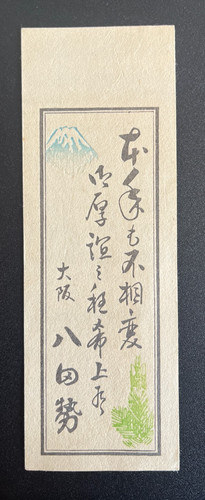 本年も不相変
御厚誼之程希上候
大阪
八田勢